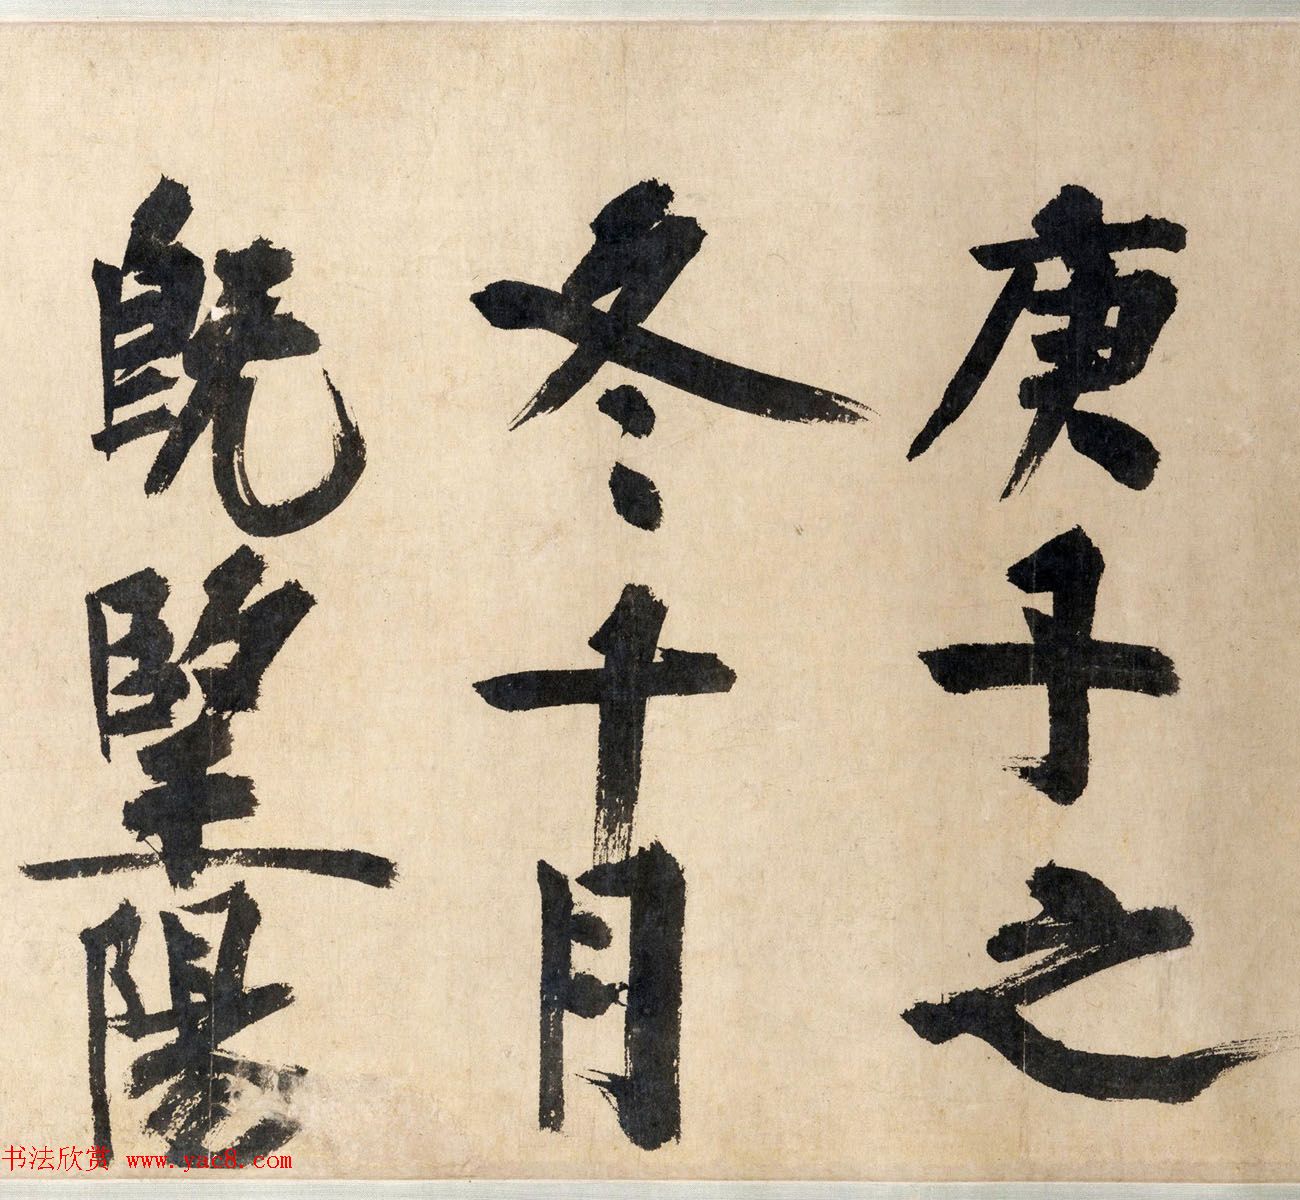 庚子之
冬十月
既塈陽
书法欣赏 www.yac8.com